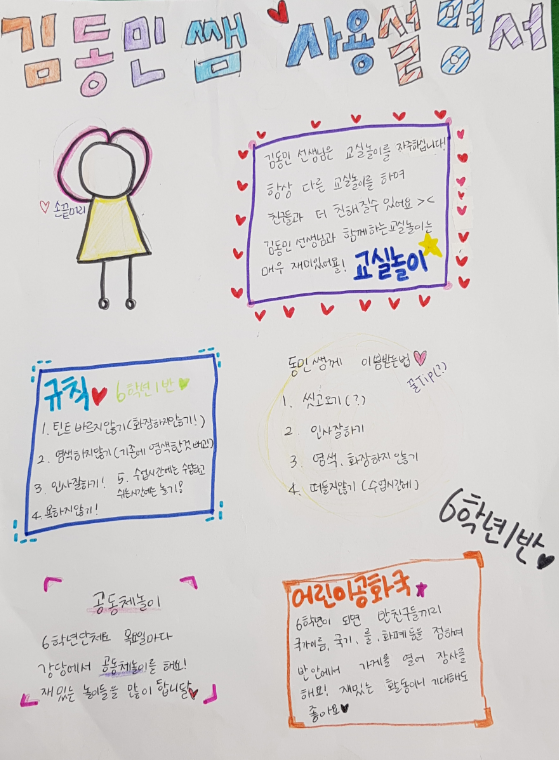 김동민 쌤 사용설명서
손끝머리
김동민 선생님은 교실놀이를 자주하십니다!
항상 다른 교실놀이를 하며
친구들과 더 친해질수 있어요 ><
김동민 선생님과 함께하는 교실놀이는
매우 재미있어요! 교실놀이
규칙 6학년 1반
1. 틴트 바르지않기(화장하지않기!)
2. 염색하지않기(기존에 염색한것 빼고!)
3. 인사잘하기! 5. 수업시간에는 수업하고
쉬는시간에는 놀기
4. 욕하지않기!
동민쌤께 이쁨받는법
꿀Tip(?)
1. 씻고오기(?)
2. 인사잘하기
3. 염색, 화장하지 않기
4. 떠들지않기 (수업시간에)
6학년1반
공동체놀이
6학년단체로 목요일마다
강당에서 공동체놀이를 해요!
재밌는 놀이들을 많이 합니당
어린이공화국
6학년이 되면 반친구들끼리
국가이름, 국기, 룰, 화폐등등을 정하여
반 안에서 가게를 열어 장사를
해요! 재밌는 활동이니 기대해도
좋아요